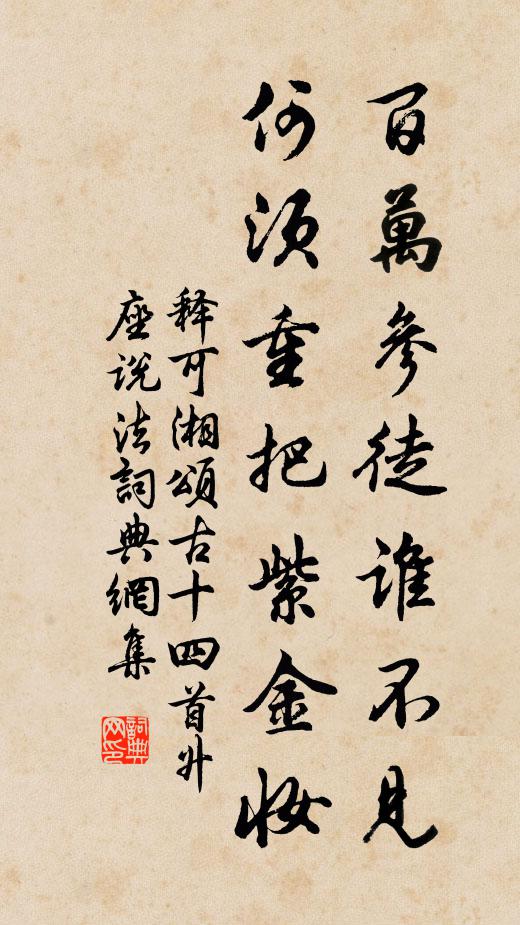 百萬參徒誰不見
何須重把紫金妝
释可湘頌古十四首升
座説法詞典網集
詞典网印